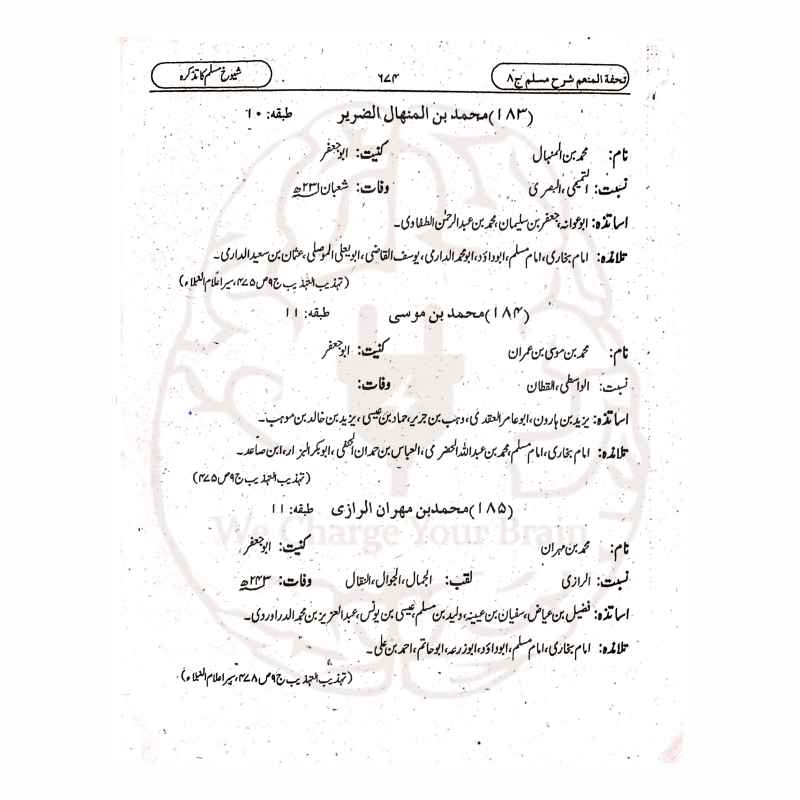 تحفة المنعم شرح مسلم ج۸ ۶۷۴ شیوخ مسلم کا تذکرہ
(۱۸۳) محمد بن المنهال الضرير طبقہ: ۱۰
نام: محمد بن المنہال کنیت: ابو جعفر
نسبت: التمیمی، البصری وفات: شعبان ۲۳۱ھ
اساتذہ: ابوعوانہ، جعفر بن سلیمان، محمد بن عبدالرحمٰن الطفاوی۔
تلامذہ: امام بخاری، امام مسلم، ابوداؤد، ابومحمد الدارمی، یوسف القاضی، ابویعلی الموصلی، عثمان بن سعید الداری۔
(تہذیب التہذیب ج۹ ص ۴۷۵، سیر اعلام النبلاء)
(۱۸۴) محمد بن موسی طبقہ: ۱۱
نام: محمد بن موسی بن عمران کنیت: ابو جعفر
نسبت: الواسطی، القطان وفات:
اساتذہ: یزید بن ہارون، ابو عامر العقدی، وہب بن جریر، حماد بن عیسی، یزید بن خالد بن موہب۔
تلامذہ: امام بخاری، امام مسلم، محمد بن عبداللہ الحضرمی، العباس بن حمدان الحنفی، ابوبکر البزار، ابن صاعد۔
(تہذیب التہذیب ج۹ ص ۴۷۵)
(۱۸۵) محمد بن مهران الرازی طبقہ: ۱۱
We Charge Your Brain
نام: محمد بن مہران کنیت: ابو جعفر
نسبت: الرازی لقب: الجمال، الجوال، النقال وفات: ۲۴۳ھ
اساتذہ: فضیل بن عیاض، سفیان بن عیینہ، ولید بن مسلم، عیسی بن یونس، عبدالعزیز بن محمد الدراوردی۔
تلامذہ: امام بخاری، امام مسلم، ابوداؤد، ابوزرعہ، ابوحاتم، احمد بن علی۔
(تہذیب التہذیب ج۹ ص ۴۷۸، سیر اعلام النبلاء)